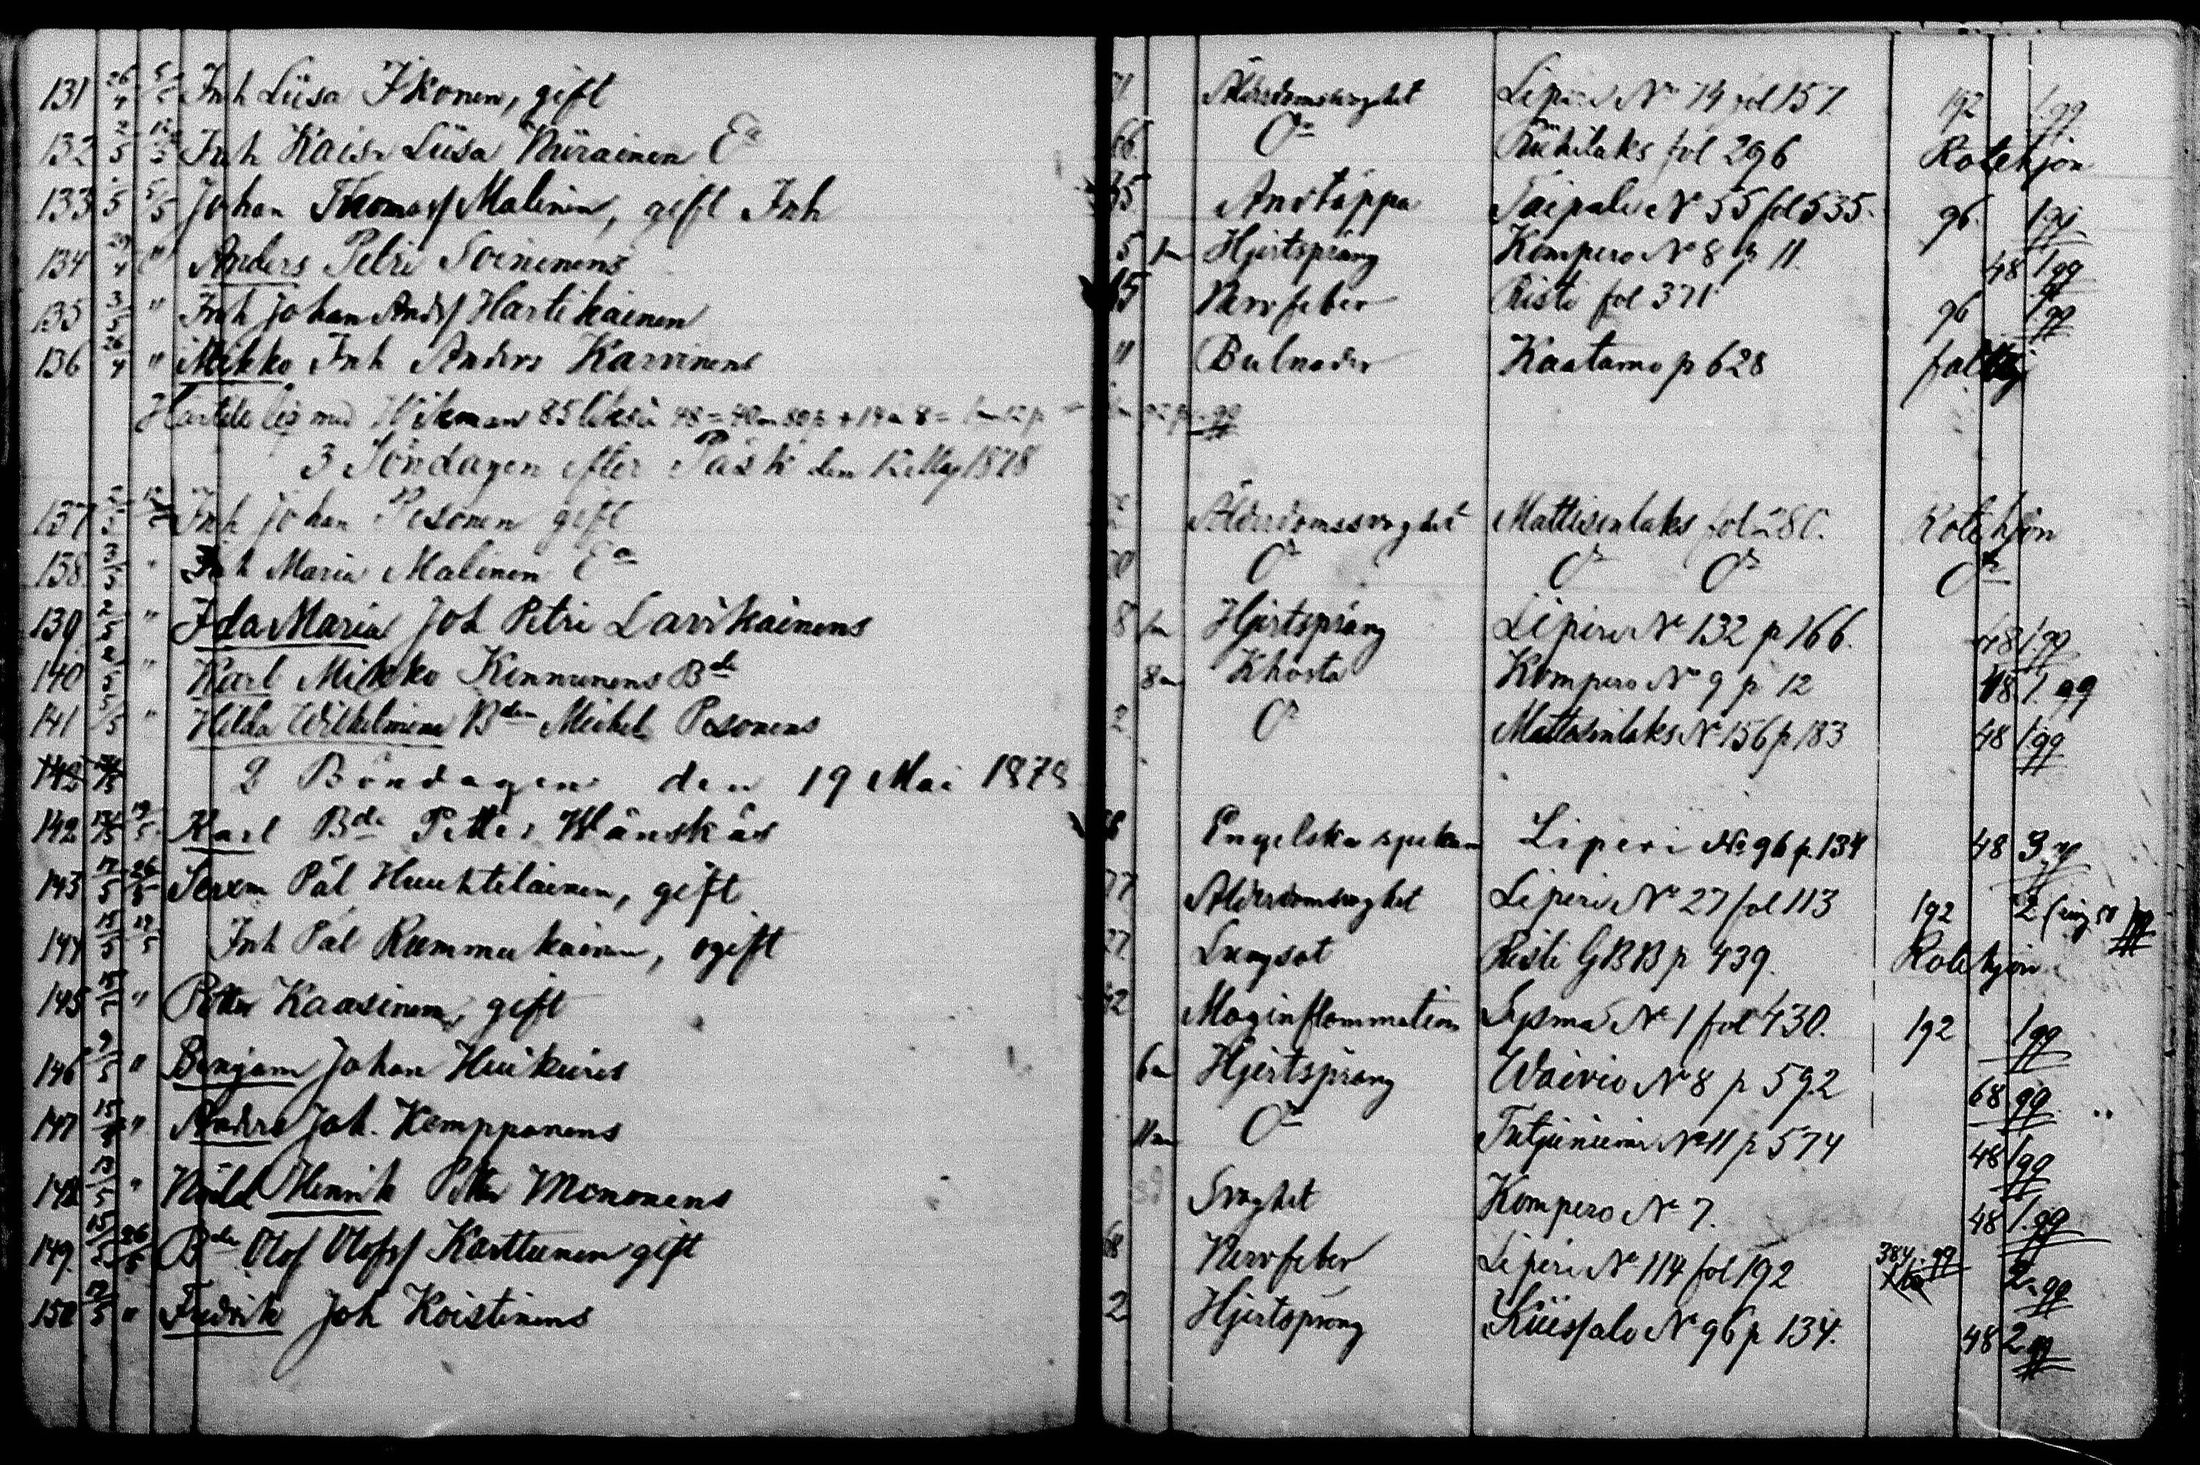 131 26/4 5/5 Inh Liisa Ikonen, gift 71 Ålderdomsvaghet Liperi No 74 fol 157. 192 1 qq
132 2/5 12/5 Inh Kaisa Liisa Piirainen Ea 66. Do Riihilaks fol 296 Rotehjon
133 /5 5/5 Johan Thomass Malinen, gift Inh 45 Andtäppa Taipale No 55 fol 535. 96. 1 qq
134 29/4 " Anders Petri Soininens 5 1m Hjertsprång Kompero No 8 p 11. 48 1 qq
135 3/5 " Inh Johan Anders Hartikainen 45 Nervfeber Risti fol 371 96 1 qq
136 26/4 " Mikko Inh Anders Karvinens 11 Bulnader Kaatamo p 628
med Wikman 85 48 = 40m 80p + 14 a 8 = 1m 12p qq
3 Söndagen efter Påsk den 12 Maj 1878
137 2/5 12/5 Inh Johan Pesonen gift Ålderdomssvaghet Mattisenlaks fol 280. Rotehjon
138 3/5 " Inh Maria Malinen Ea 70 Do Do Do Do
139 2/5 " Ida Maria Joh Petri Lavikainens 8 1m Hjertsprång Liperi No 132 p 166. 48 1 qq
140 2/5 " Karl Mikko Kinnunens Bde 8m Khosta Kompero No 9 p 12 48 1. qq
141 5/5 " Hilda Wilhelmina Bden Michel Pesonens 2 Do Mattisinlaks No 156 p 183 48 1 qq
142 14/5 2 Böndagen den 19 Mai 1878
142 14/5 19/5 Karl Bde Petter Wänskäs 8 Engelska sjukan Liperi No 96 p. 134 48 3 qq
143 17/5 26/5 Pål Huuhtilainen, gift 77 Ålderdomsvaghet Liperi No 27 fol 113 192 2 qq
144 15/5 19/5 Inh Pål Rummukainen, ogift 27 Lungsot Risti GBB p 439. Rotehjon
145 15/5 " Petter Kaasinen, gift 42 Maginflammation Sysmä No 1 fol 430. 192 1 qq
146 9/5 " Benjam Johan Huikuris 6m Hjertsprång Waivio No 8 p 592 68 qq
147 15/5 " Anders Joh. Kemppanens 11m Do Tutjuniemi No 11 p 574 48 1 qq
148 13/5 " Nådd Henrik Petter Mononens Svaghet Kompero No 7. 48 1. qq
149. 15/5 26/5 Bden Olof Olofss Karttunen gift 68 Nervfeber Liperi No 114 fol 192 384 qq 2. qq
150 19/5 " Fredrik Joh Koistinens 2 Hjertsprång Kiissalo No 96 p 134. 48 2 qq